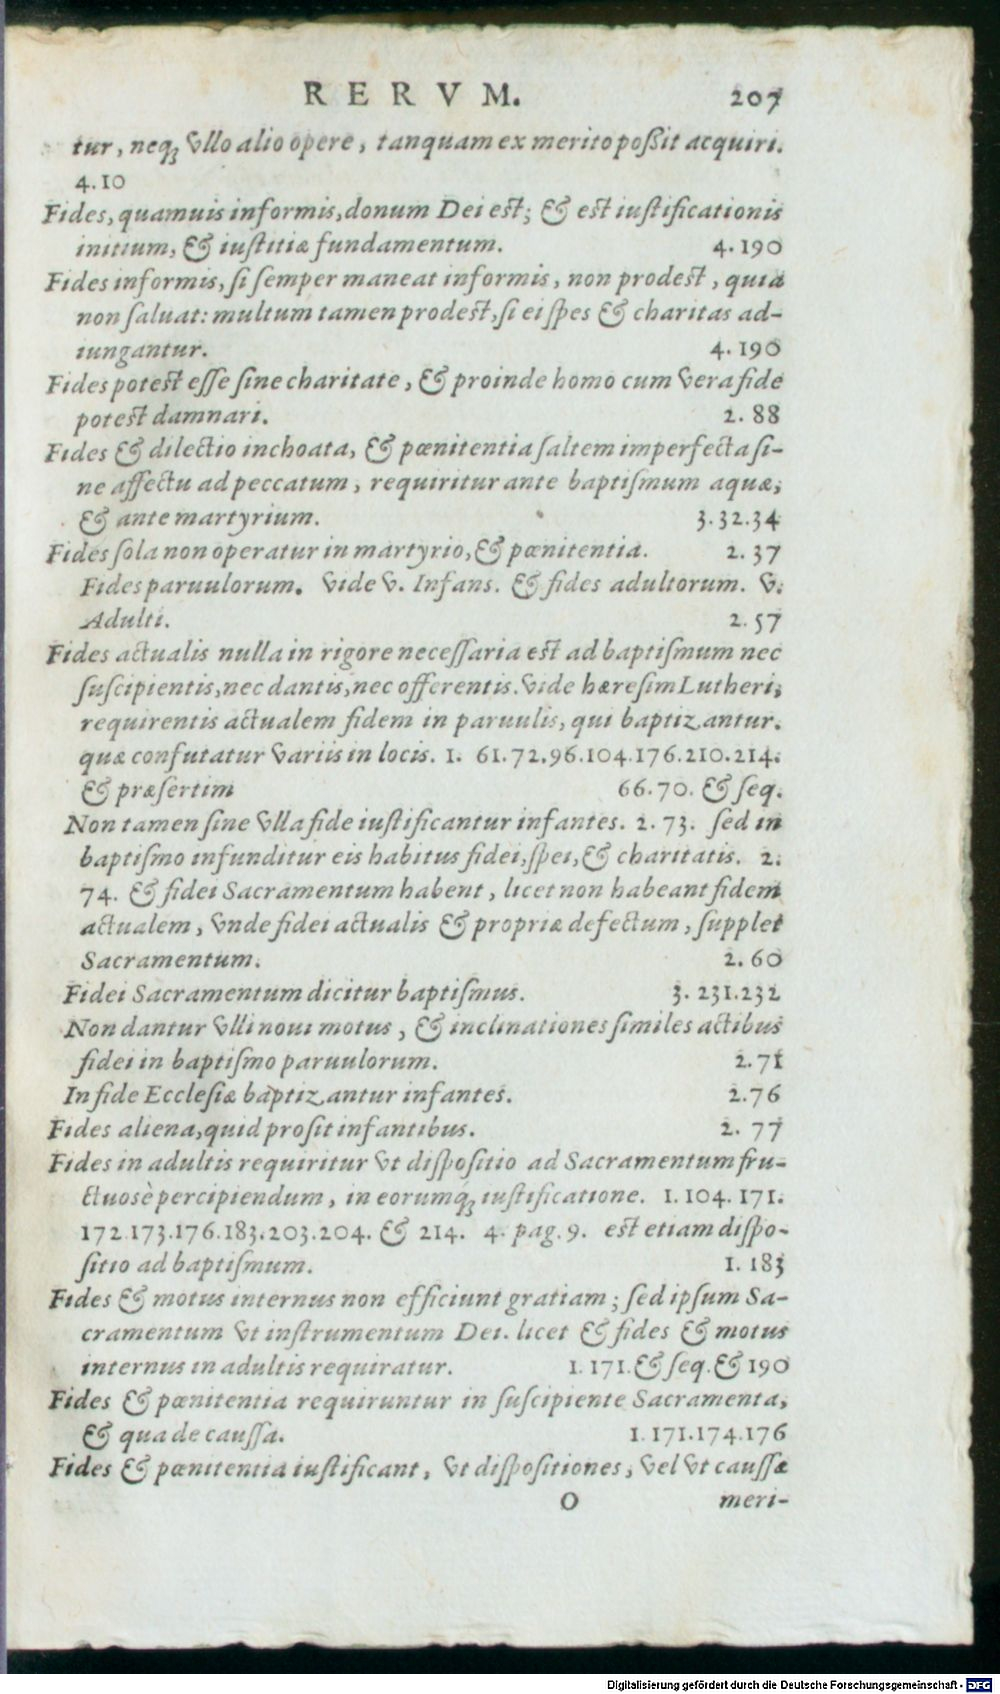 RERVM. 207
tur, neq; vllo alio opere, tanquam ex merito poßit acquiri.
4.10
Fides, quamuis informis, donum Dei est; & est iustificationis
initium, & iustitiæ fundamentum. 4.190
Fides informis, si semper maneat informis, non prodest, quia
non saluat: multum tamen prodest, si ei spes & charitas ad-
iungantur. 4.190
Fides potest esse sine charitate, & proinde homo cum vera fide
potest damnari. 2.88
Fides & dilectio inchoata, & pœnitentia saltem imperfecta si-
ne affectu ad peccatum, requiritur ante baptismum aquæ,
& ante martyrium. 3.32.34
Fides sola non operatur in martyrio, & pœnitentia. 2.37
Fides paruulorum. vide v. Infans. & fides adultorum. v.
Adulti. 2.57
Fides actualis nulla in rigore necessaria est ad baptismum nec
suscipientis, nec dantis, nec offerentis. Vide hæresim Lutheri,
requirentis actualem fidem in paruulis, qui baptizantur.
quæ confutatur variis in locis. 1. 61.72.96.104.176.210.214.
& præsertim 66.70. & seq.
Non tamen sine vlla fide iustificantur infantes. 2.73. sed in
baptismo infunditur eis habitus fidei, spei, & charitatis. 2.
74. & fidei Sacramentum habent, licet non habeant fidem
actualem, vnde fidei actualis & propriæ defectum, supplet
Sacramentum. 2.60
Fidei Sacramentum dicitur baptismus. 3.231.232
Non dantur vlli noui motus, & inclinationes similes actibus
fidei in baptismo paruulorum. 2.71
In fide Ecclesiæ baptizantur infantes. 2.76
Fides aliena, quid prosit infantibus. 2.77
Fides in adultis requiritur vt dispositio ad Sacramentum fru-
ctuosè percipiendum, in eorumq́; iustificatione. 1.104.171.
172.173.176.183.203.204. & 214. 4. pag. 9. est etiam dispo-
sitio ad baptismum. 1.183
Fides & motus internus non efficiunt gratiam; sed ipsum Sa-
cramentum vt instrumentum Dei. licet & fides & motus
internus in adultis requiratur. 1.171. & seq. & 190
Fides & pœnitentia requiruntur in suscipiente Sacramenta,
& qua de caussa. 1.171.174.176
Fides & pœnitentia iustificant, vt dispositiones, vel vt caussæ
O meri-
Digitalisierung gefördert durch die Deutsche Forschungsgemeinschaft - DFG